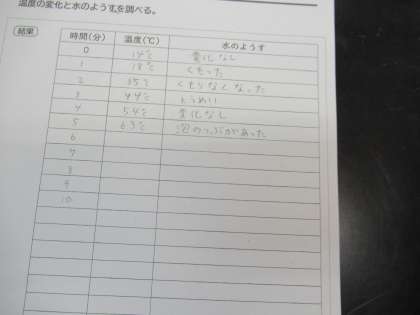 温度の変化と水のようすを調べる。
結果
時間(分) 温度(℃) 水のようす
0 14℃ 変化なし
1 18℃ くもった
2 35℃ くもりなくなった
3 44℃ とうめい
4 54℃ 変化なし
5 63℃ 泡のつぶがあった
6
7
8
9
10